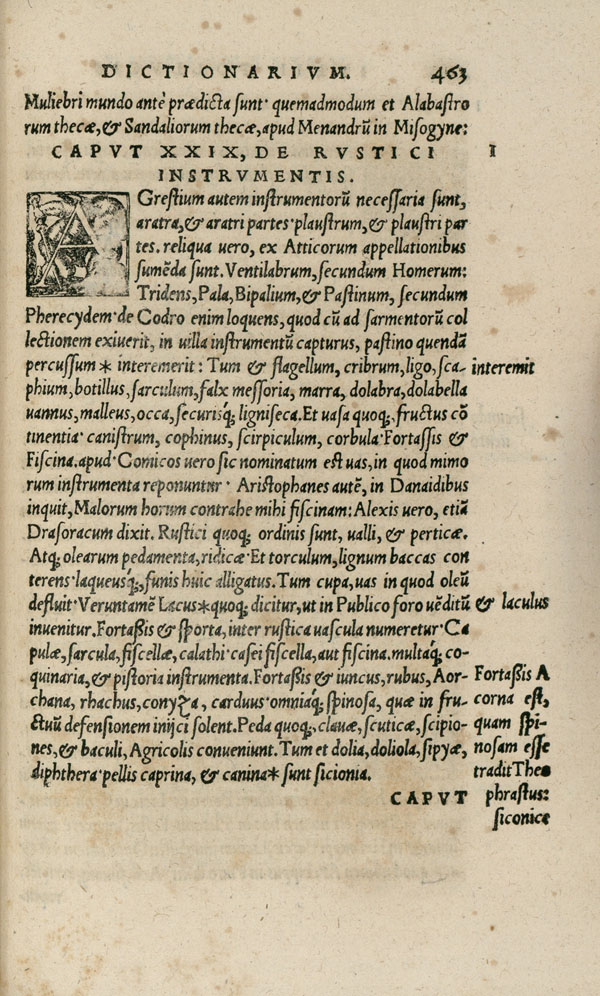 DICTIONARIVM. 463
Muliebri mundo antè prædicta sunt· quemadmodum et Alabastro
rum thecæ, & Sandaliorum thecæ, apud Menandrū in Misogyne:
CAPVT XXIX, DE RVSTICI I
INSTRVMENTIS.
AGrestium autem instrumentorū necessaria sunt,
aratra, & aratri partes· plaustrum, & plaustri par
tes. reliqua uero, ex Atticorum appellationibus
sumēda sunt. Ventilabrum, secundum Homerum:
Tridens, Pala, Bipalium, & Pastinum, secundum
Pherecydem· de Codro enim loquens, quod cū ad sarmentorū col
lectionem exiuerit, in uilla instrumentū capturus, pastino quendā
percussum * interemerit : Tum & flagellum, cribrum, ligo, sca- interemit
phium, botillus, sarculum, falx messoria, marra, dolabra, dolabella
uannus, malleus, occa, securisq; ligniseca. Et uasa quoq;, fructus cō
tinentia· canistrum, cophinus, scirpiculum, corbula· Fortassis &
Fiscina. apud· Comicos uero sic nominatum est uas, in quod mimo
rum instrumenta reponuntur· Aristophanes autē, in Danaidibus
inquit, Malorum horum contrahe mihi fiscinam: Alexis uero, etiā
Drasoracum dixit. Rustici quoq; ordinis sunt, ualli, & perticæ.
Atq; olearum pedamenta, ridicæ· Et torculum, lignum baccas con
terens· laqueusq;, funis huic alligatus. Tum cupa, uas in quod oleū
defluit· Veruntamē Lacus* quoq; dicitur, ut in Publico foro uēditū & laculus
inuenitur. Fortaßis & sporta, inter rustica uascula numeretur· Ca
pulæ, sarcula, fiscellæ, calathi· casei fiscella, aut fiscina. multaq; co-
quinaria, & pistoria instrumenta. Fortaßis & iuncus, rubus, Aor- Fortaßis A
chana, rhachus, conyza, carduus· omniaq; spinosa, quæ in fru- corna est,
ctuū defensionem inijci solent. Peda quoq;, clauæ, scuticæ, scipio- quam spi-
nes, & baculi, Agricolis conueniunt. Tum et dolia, doliola, sipyæ, nosam esse
diphthera· pellis caprina, & canina* sunt sicionia. tradit Theo
CAPVT phrastus:
siconice